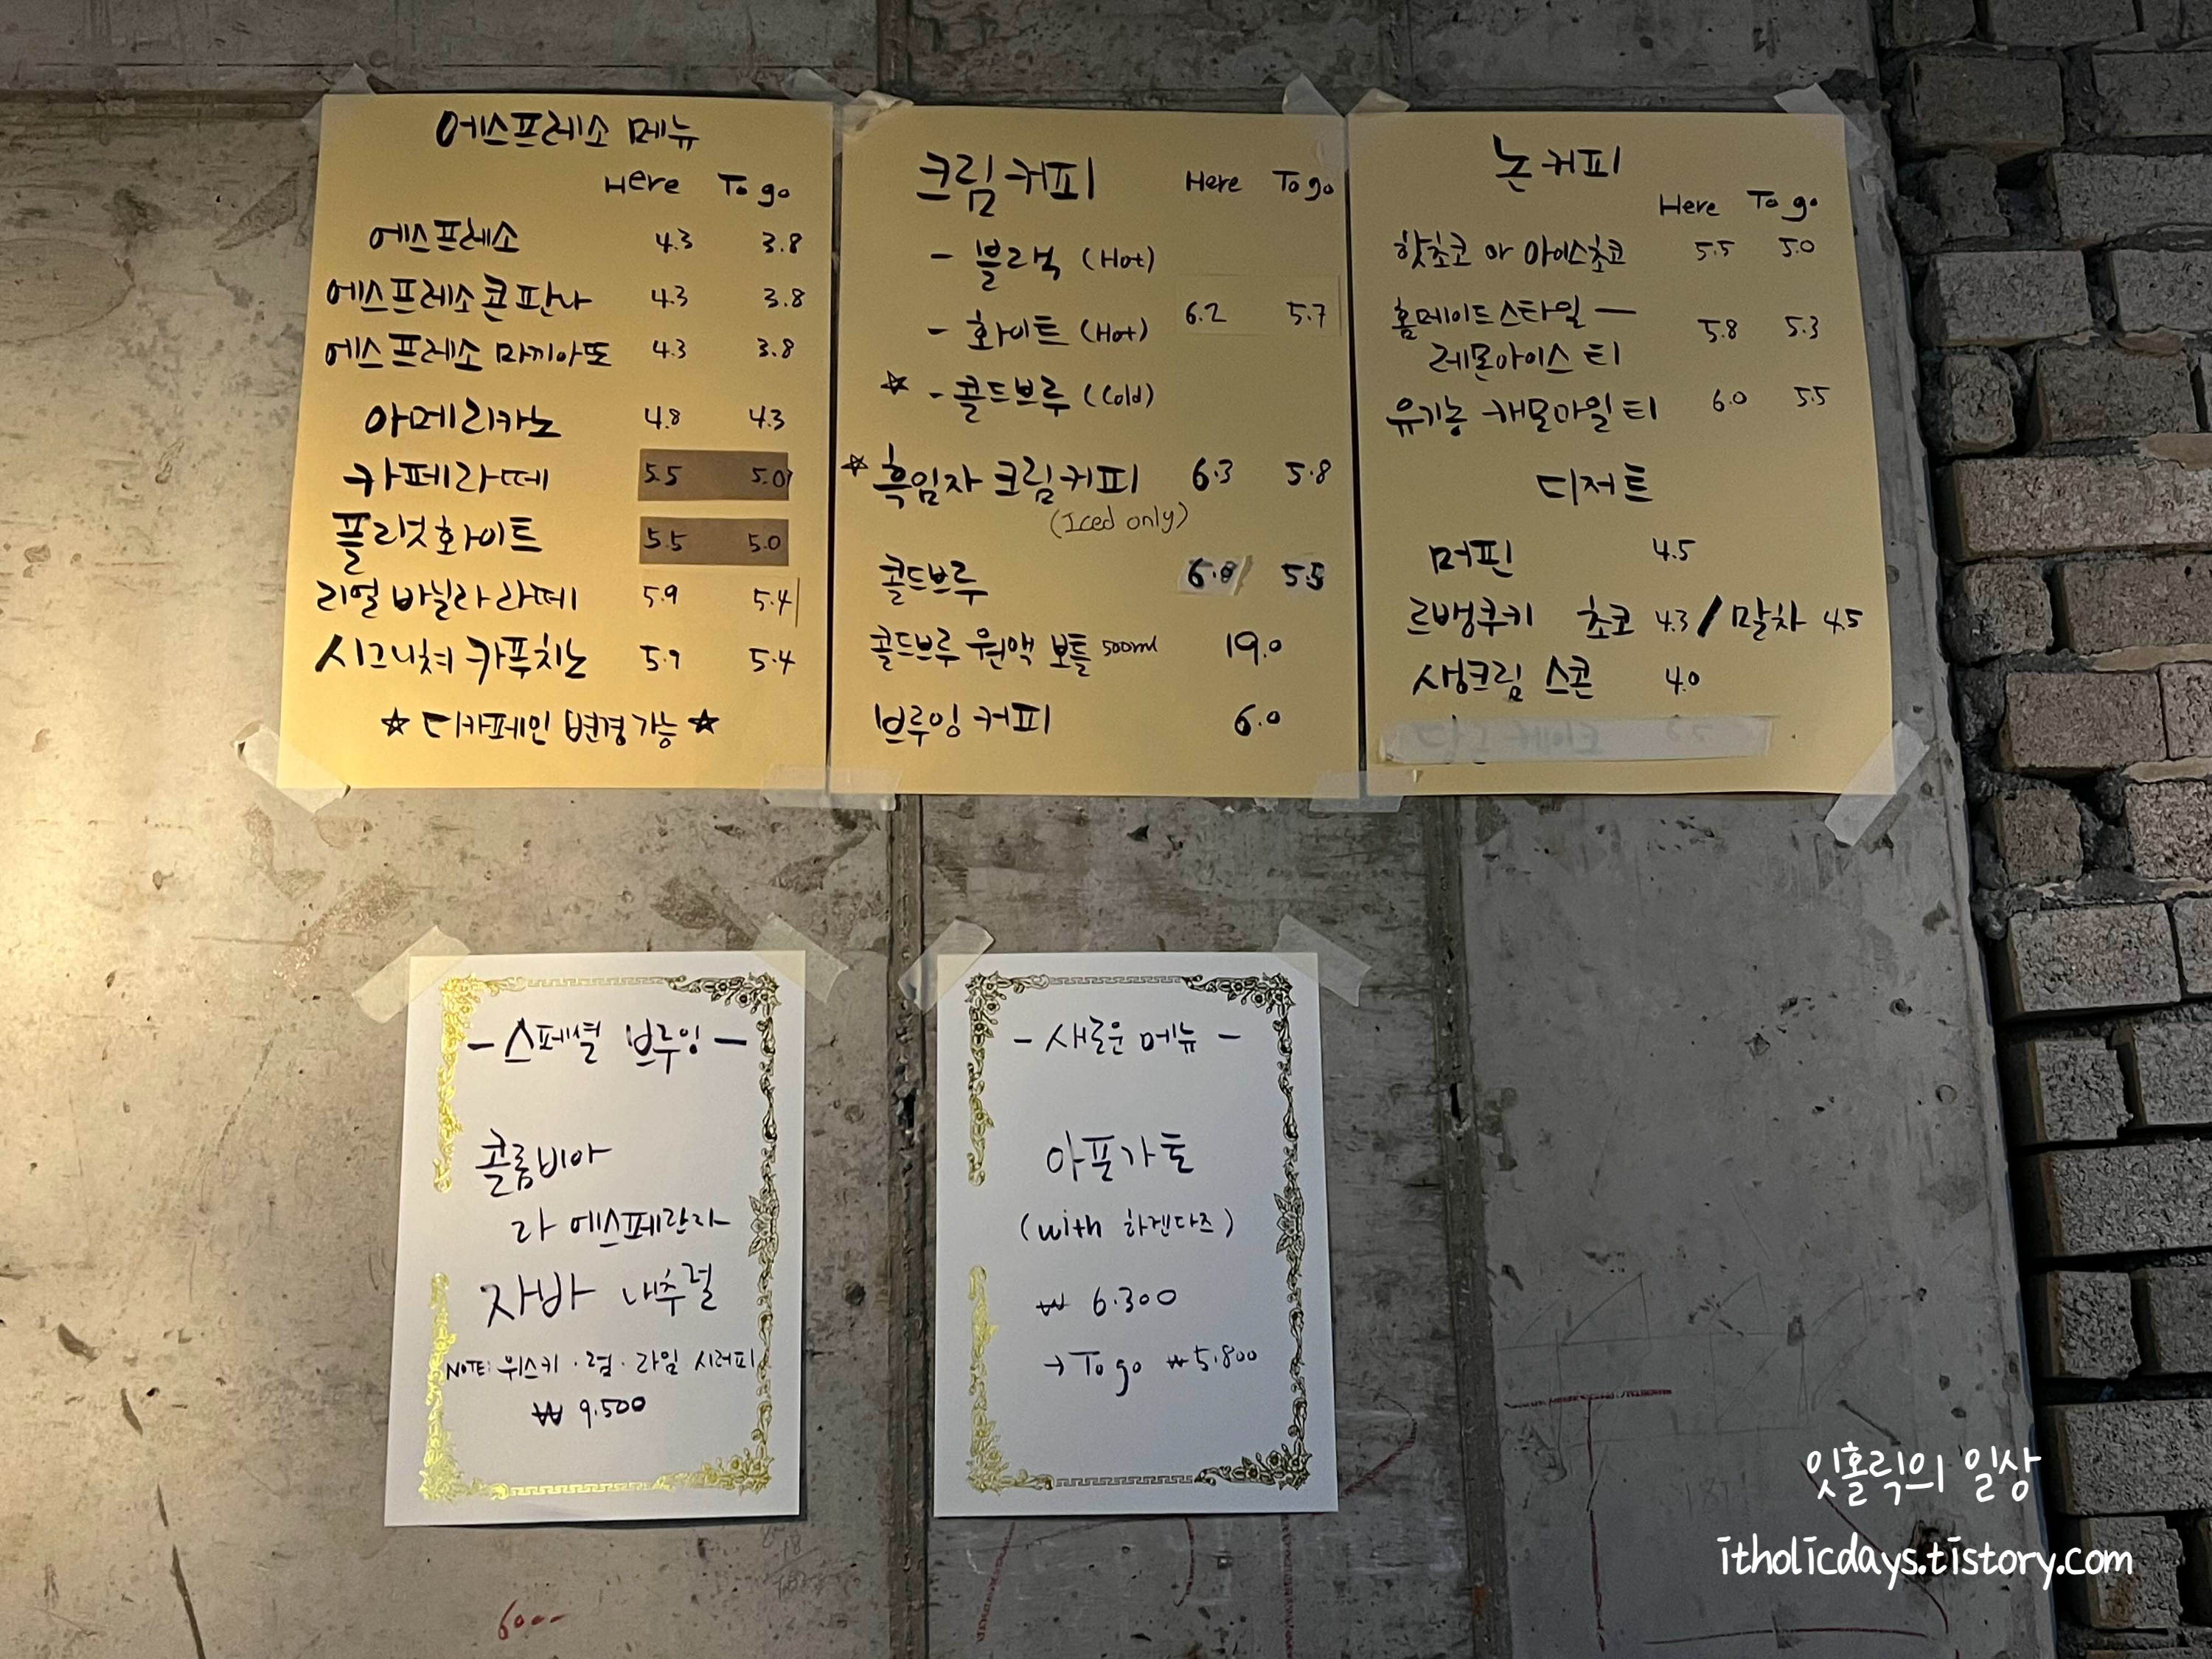 에스프레소 메뉴
Here To go
에스프레소 4.3 3.8
에스프레소 콘 판나 4.3 3.8
에스프레소 마끼아또 4.3 3.8
아메리카노 4.8 4.3
카페라떼 5.5 5.0
플랫화이트 5.5 5.0
리얼 바닐라 라떼 5.9 5.4
시그니쳐 카푸치노 5.9 5.4
☆ 디카페인 변경가능 ☆
크림커피 Here To go
- 블랙 (Hot)
- 화이트 (Hot) 6.2 5.7
☆ - 콜드브루 (Cold)
☆ 흑임자 크림커피 6.3 5.8
(Iced only)
콜드브루 5.5
콜드브루 원액 보틀 500ml 19.0
브루잉 커피 6.0
논커피
Here To go
핫초코 or 아이스초코 5.5 5.0
홈메이드스타일 — 5.8 5.3
레몬아이스 티
유기농 캐모마일 티 6.0 5.5
디저트
머핀 4.5
르뱅쿠키 초코 4.3 / 말차 4.5
생크림 스콘 4.0
- 스페셜 브루잉 -
콜롬비아
라 에스페란자
자바 내추럴
NOTE: 위스키 · 럼 · 라임 시러피
₩ 9.500
- 새로운 메뉴 -
아포가토
(with 하겐다즈)
₩ 6.300
→ To go ₩ 5.800
잇홀릭의 일상
itholicdays.tistory.com